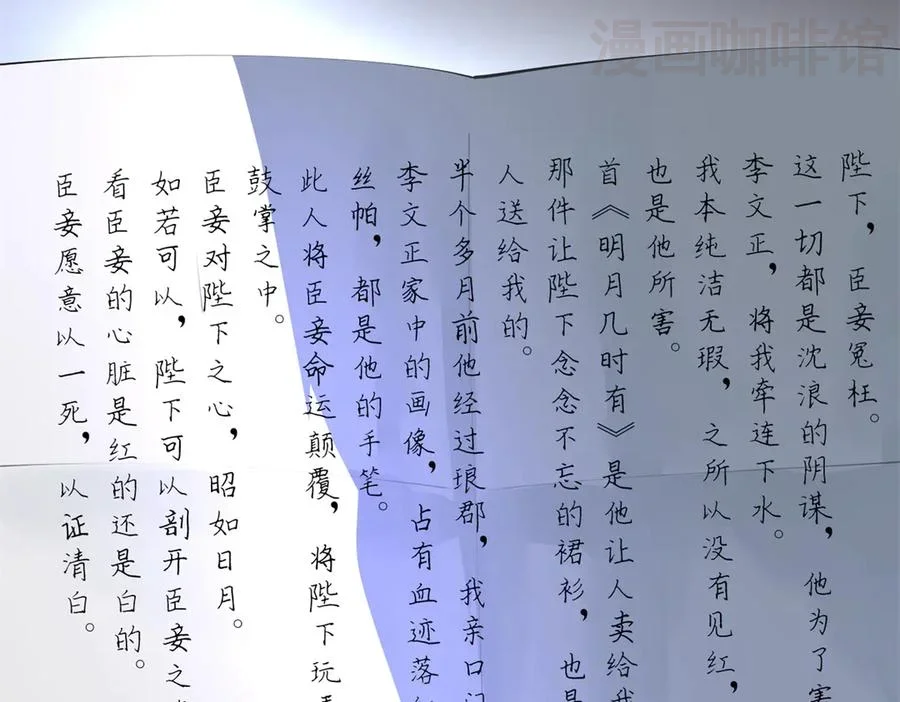 漫画咖啡馆
陛下，臣妾冤枉。
这一切都是沈浪的阴谋，他为了害
李文正，将我牵连下水。
我本纯洁无瑕，之所以没有见红，
也是他所害。
首《明月几时有》是他让人卖给我
那件让陛下念念不忘的裙衫，也是
人送给我的。
半个多月前他经过琅郡，我亲口
李文正家中的画像，占有血迹落
丝帕，都是他的手笔。
此人将臣妾命运颠覆，将陛下玩
鼓掌之中。
臣妾对陛下之心，昭如日月。
如若可以，陛下可以剖开臣妾之
看臣妾的心脏是红的还是白的。
臣妾愿意以一死，以证清白。